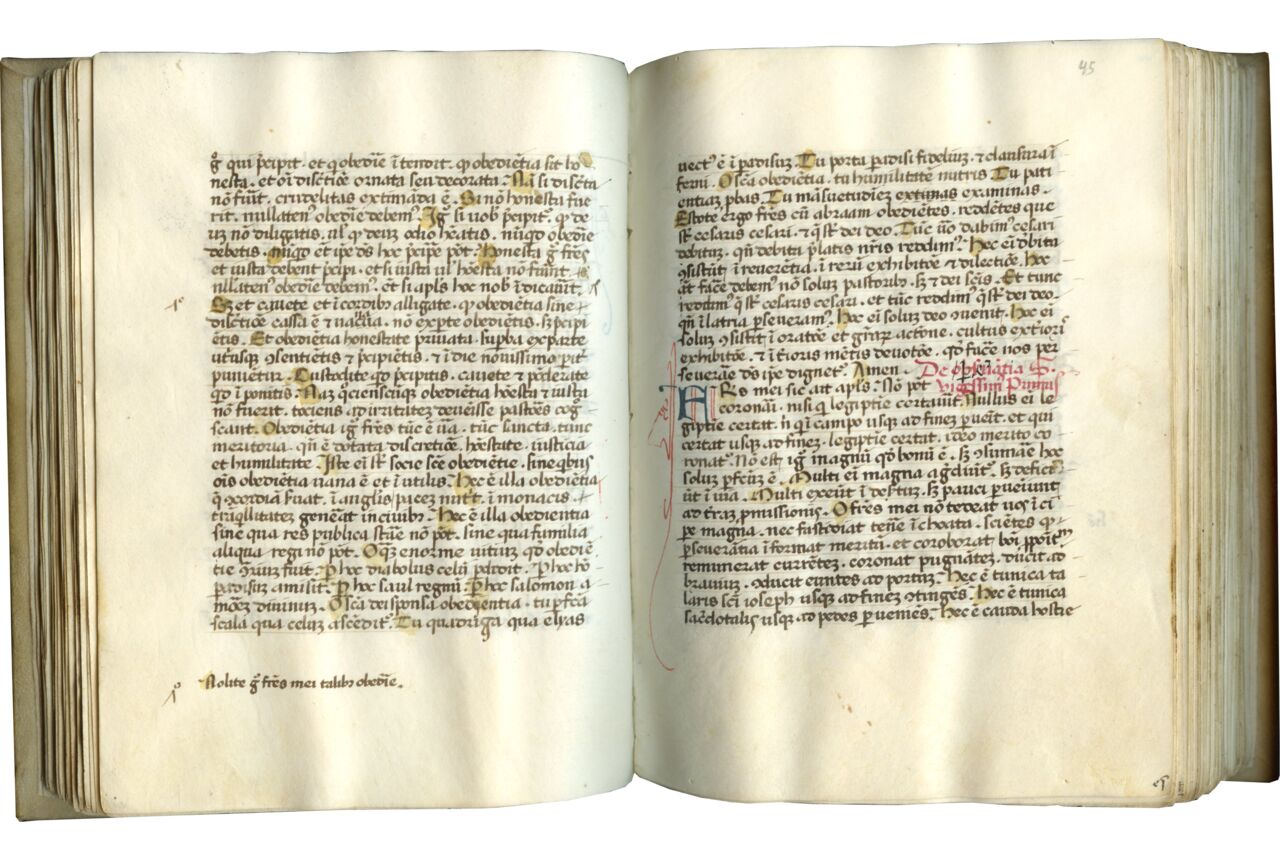 g̊ qui p̄cipit · et q obedīe ī tenōit · qꝫ obediētia sit ho
nesta · et oī discr̄tiōe ornata seu decorata · Nā si discr̄ta
nō fūīt · crudelitas extimāda ē · Si nō honesta fue
rit · nullatenꝰ obedīe debemꝰ · Ig̃ si uob̄ p̄cipit̃ · qꝫ de
uꝫ nō diligatis · ul̓ qꝫ deuꝫ odio h̄eatis · nūqd obedīe
debetis · nūqd et ip̄e ds̄ hoc p̄cipe pōt · honesta g̊ fr̄es
et iusta debent p̄cipi · et si iusta ul̓ hōesta nō fūint ·
nullatenꝰ obedīe debemꝰ · et si apl̄s hoc nob̄ īdicauīt ·
Sꝫ et cauete et ī cordibꝫ alligate · qꝫ obediētia sine
discr̄tiōe cassa ē ⁊ uacua · nō ex p̄te obediētis · sꝫ p̄cipi
ētis · Et obediētia honestate priuata · supba ex parte
utriusqꝫ ↄsentiētis ⁊ p̄cipiētis · ⁊ ī die nouissimo pit̃
punientur · Custodite qd p̄cipitis · cauete ⁊ pōderate
qd ī ponitis · Naꝫ qcienscūqꝫ obediētia hōesta ⁊ iusta
nō fuerit · tociens ad irritātēꝫ deuēisse pastōes cog
scant · Obediētia ig̃ fr̄es tūc ē ūa · tūc sancta · tunc
meritoria · qn̄ ē dotata discretiōe · hōestate · iusticia
et humilitate · Iste eī sr̄ socie sc̄e obediētie · sine qbus
oīs obediētia uana ē et ī utilis · Hec ē illa obediētia
q ↄcordiam seruat · ī angl̓is pacez nutt̄ · ī monacis ·
trāqllitatez gen̄eat in ciuibꝫ · Hec ē illa obedientia
sine qua res publica stāe nō pōt · sine qua familia
aliqua regi nō pōt · O qꝫ enorme uitiuꝫ qd obediē
tie ↄ̄riuꝫ fuit · P̄ hoc diabolus celū perdit · P̄ hoc hō
padisuꝫ amisit · P̄ hoc saul regnū · P̄ hoc salomon a
moꝫ diuinuꝫ · O sc̄a dei sponsa obedientia · tu p̄fc̄a
scala qua celuꝫ ascēdit̃ · Tu quadriga qua elyas
Nolite g̊ fr̄es mei talibꝫ obedīe ·
45
uectꝰ ē ī padisuꝫ · Tu porta padisi fideliuꝫ · ⁊ clausura ī
ferni · O sc̄a obediētia · tu humilitatē nutris · Tu pati
entiaꝫ p̄bas · Tu māsuetudiēz extimas examinas ·
Estote ergo fr̄es cū abraam obediētes · reddētes que
sr̄ cesaris cesari · ⁊ q̄ sr̄ dei deo · Tūc ūo dabim̃ cesari
debituꝫ · qn̄ debita p̄latis nr̄is reddim̃ · Hec eī db̄ita
ↄsistūt · ī reuerētia · ī rerū exhibitōe ⁊ dilectiōe · Hoc
aūt facē debemꝰ nō soluꝫ pastoribꝫ · sꝫ ⁊ dei sc̄is · Et tunc
reddim̃ q̄ sr̄ cesaris cesari · et tūc reddim̃ q̄ sr̄ dei deo ·
qn̄ ī latria p̄seueramꝰ · Hoc eī soluꝫ deo ↄuenit · Hoc eī
soluꝫ ↄsistit ī oratōe et gr̄aꝝ actione · cultus exteriori
exhibitōe · ⁊ īt̓ioris mētis deuotōe · qd̄ facē nos per
seuerāe ds̄ ip̄e dignet̃ · Amen · De p̄seuerātia S.
FRs mei sic ait apl̄s · Nō pōt vigessim̃ Primus
coronāi · nisi q̇ legiptie certauīt · Nullus eī le
giptie certat · ñ qui ī campo usqꝫ ad finez p̄ueit · et qui
certat usqꝫ ad finez · legiptie certat · ideo merito co
ronat̃ · Nō est ig̃ magnū qd̄ bonū ē · sꝫ ↄsumāe hoc
soluꝫ p̄fc̄uꝫ ē · Multi eī magna ag̃diūt̃ · sꝫ deficr̄
ūt ī uia · Multi exeūt ī desr̄tuꝫ · sꝫ pauci p̄ueiunt
ad tr̄aꝫ p̄missionis · O fr̄es mei nō tedeat uos īci
pe magna · nec fastidiat tenēe īchoata · scīētes qꝫ
p̄seuerātia īformat meritū · et coroborat boī p̄poītū
remunerat currētez · coronat pugnātez · dūcit ad
brauiuꝫ · ↄducit euntes ad portuꝫ · Hec ē tunica ta
laris sc̄i ioseph usqꝫ ad finez ↄtingēs · Hec ē tunica
sac̄dotalis usqꝫ ad pedes p̄ueniēs · Hec ē cauda hostie